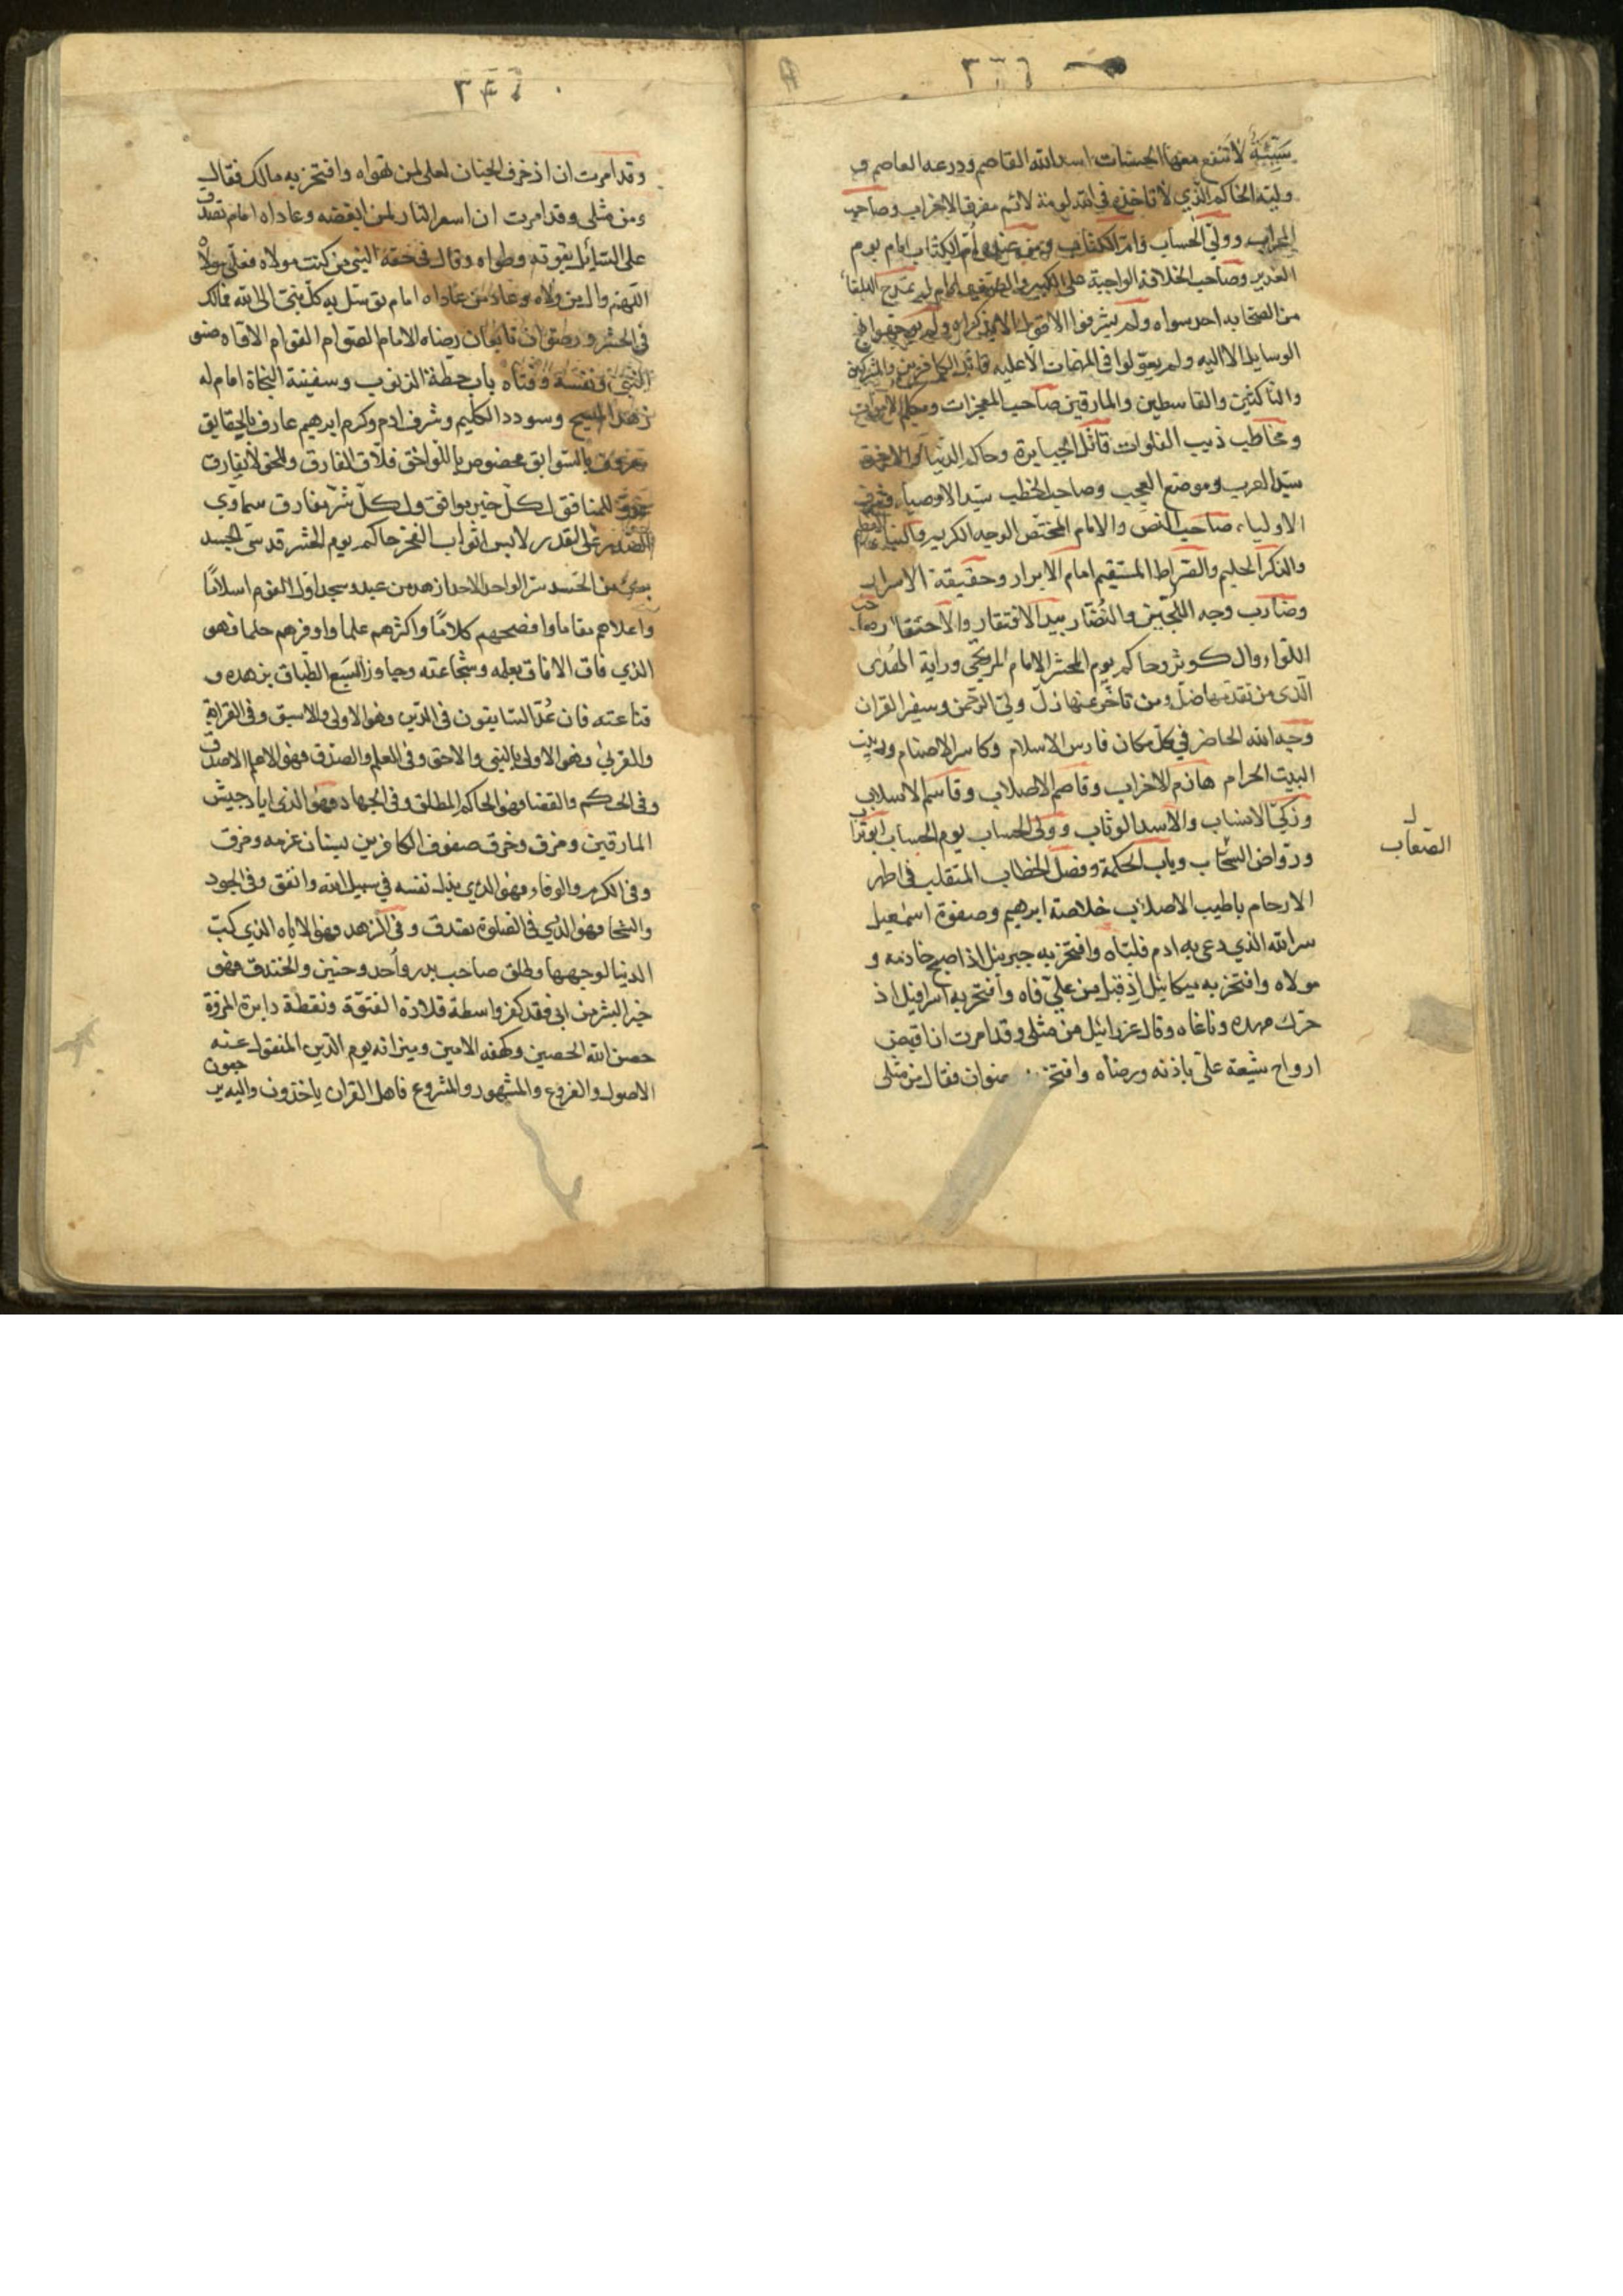 ٢٢٦
سَيِّئَةٌ لا تنفع معها الحسنات اسد الله القاصم ودرعه العاصم و
وليّه الحاكم الذي لا تاخذه في الله لومة لائم مفرق الاحزاب وصاحب
المحراب وولي الحساب وامّ الكتاب ومن عنده أمّ الكتاب امام يوم
الغدير وصاحب الخلافة الواجبة على الكبير والصغير امام لم تمدح البلغاء
من الصحابه احد سواه ولم يشرفوا الاقوال الا بذكراه ولم
الوسايل الا اليه ولم يعوّلوا في المهمات الا عليه قاتل الكافرين والمشركين
والناكثين والقاسطين والمارقين صاحب المعجزات ومكلم الاموات
ومخاطب ذيب الفلوات قاتل الجبابرة وحاكم الدنيا والاخرة
سيّد العرب وموضع العجب وصاحب الخطب سيّد الاوصياء وشرف
الاولياء صاحب النص والامام المختص الوجيه الكريم والنبأ العظيم
والذكر الحليم والصّراط المستقيم امام الابرار وحقيقة الاسرار
وضارب وجه اللُّجين والنُّضار بيد الافتقار والاحتقار صاحب
اللواء وال كوثر وحاكم يوم المحشر الامام المرتجى وراية الهُدى
الّذى من تقدّمها ضلّ ومن تاخّر عنها زلّ وليّ الرحمن وسفير القران
وجه الله الحاضر في كلّ مكان فارس الاسلام وكاسر الاصنام وربيب
البيت الحرام هازم الاحزاب وقاصم الاصلاب وقاسم الاسلاب
وزكيّ الانساب والاسد الوثاب وولى الحساب يوم الحساب ابو تراب
وروّاض السّحاب وباب الحكمة وفصل الخطاب المتقلب في اطهر
الصّعاب
الارحام باطيب الاصلاب خلاصة ابرهيم وصفوة اسمعيل
سر الله الذي دعى به ادم فلبّاه وافتخر به جبرئيل اذ اصبح خادمه و
مولاه وافتخر به ميكائيل اذ قبل من عليّ فاه وافتخر به اسرافيل اذ
حرّك مهده وناغاه وقال عزرائيل من مثلى وقد امرت ان اقبض
ارواح شيعة علىّ باذنه ورضاه وافتخر رضوان فقال من مثلى
٢٤٦
وقد امرت ان ازخرف الجنان لعلى لمن تهواه وافتخر به مالك فقال
ومن مثلى وقد امرت ان اسعر النار لمن ابغضه وعاداه امام تصدّق
على السّائل بقوته وطواه وقال في حقه النبى من كنت مولاه فعلى مولاه
اللّهم وال من ولاه وعاد من عاداه امام توسّل به كلّ نبىّ الى الله مالك
فى الحشر ورضوان تابعان رضاه الامام الصّوام القوام الاوّاه صنو
النبى ونفسه وفتاه باب حطة الذنوب وسفينة النجاة امام له
زهد المسيح وسودد الكليم وشرف ادم وكرم ابرهيم عارف بالحقايق
معروف بالسّوابق مخصوص باللواحق فلّاق المفارق وللحق لا يفارق
عدوّ للمنافق لكلّ خير موافق ولكلّ شرّ مفارق سماوي
علىّ القدر لابس اثواب الفخر حاكم يوم الحشر قدسىّ الجسد
برىء من الحسد سرّ الواحد الاحد ازهد من عبد وسجد اوّل القوم اسلامًا
واعلاهم مقاما وافصحهم كلامًا واكثرهم علما واوفرهم حلما فهو
الذي فاق الافاق بعلمه وشجاعته وجاوز السّبع الطباق بزهده و
قناعته فان عُدّ السّابقون فى الدّين وهو الاولى والاسبق وفى القرابة
والقربى فهو الاولى بالنبى والاحق وفى العلم والصدق فهو الاعلم الاصدق
وفى الحكم والقضا فهو الحاكم المطلق وفى الجهاد فهو الذى اباد جيش
المارقين ومزق وخرق صفوف الكافرين بسنان عزمه ومزق
وفى الكرم والوفاء فهو الذي بذل نفسه في سبيل الله وانفق وفى الجود
والسّخا فهو الذي فى الصّلوة تصدق وفى الزهد فهو الاياه الذي كبّ
الدنيا لوجهها وطلق صاحب بدر وأحد وحنين والخندق فهو
خير البشر من ابى فقد كفر واسطة قلادة الفتوّة ونقطة دايرة المروّة
حصن الله الحصين وكهفه الامين وميزانه يوم الدّين المنقول عنه
الاصول والفروع والمشهور والمشروع فاهل القران ياخذون واليه يرجعون